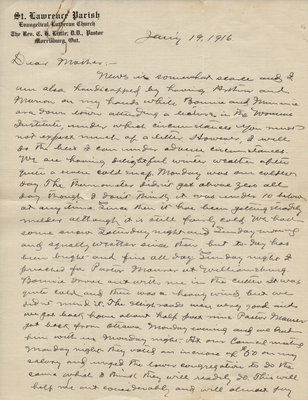 St. Lawrence Parish
Evangelical Lutheran Church
The Rev. C. H. Little, D.D., Pastor
Morrisburg, Ont.
Jan'y 19, 1916.
Dear Mother:-
News is somewhat scarce and I
am also handicapped by having and
Marion on my hands while Bonnie and Minnie
are down town attending a lecture in the Womens
Institute, under which circumstances you must
not expect much of a letter. However, I will
do the best I can under adverse circumstances.
We are having delightful winter weather after
quite a severe cold snap. Monday was our coldest
day. The thermometer didn't get above zero all
day though I don't think it was under 10 below
at any time. Since then it has been getting steadily
milder although it is still fairly cold. We had
some snow Saturday night and Sunday morning
and squally weather since then but to-day has
been bright and fine all day. Sunday night I
preached for Pastor Maurer at Williamsburg.
Bonnie drove out with me in the cutter. It was
quite cold and there was a heavy wind but we
didn't mind it. The sleigh roads was very good and
we got back home about half past nine. Pastor Maurer
got back from Ottawa Monday evening and we put
him up Monday night. At our Council meeting
Monday night they voted an increase of $50 on my
salary and urged the lower congregation to do the
same which I think they will readily do. This will
help me out considerably and will almost pay